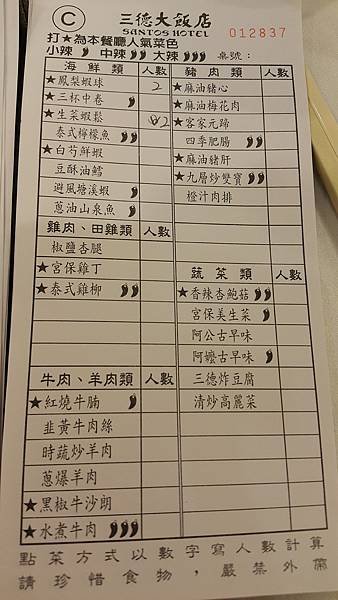 C 三德大飯店
SANTOS HOTEL
012837
打★為本餐廳人氣菜色
小辣 中辣 大辣 桌號：
海鮮類 人數
★鳳梨蝦球 2
★三杯中卷
★生菜蝦鬆 2
泰式檸檬魚
★白芍鮮蝦
豆酥油鱈
避風塘溪蝦
蔥油山泉魚
雞肉、田雞類 人數
椒鹽杏腿
★宮保雞丁
★泰式雞柳
牛肉、羊肉類 人數
★紅燒牛腩
韭黃牛肉絲
時蔬炒羊肉
蔥爆羊肉
★黑椒牛沙朗
★水煮牛肉
豬肉類 人數
★麻油豬心
★麻油梅花肉
★客家元蹄
四季肥腸
★麻油豬肝
★九層炒雙寶
橙汁肉排
蔬菜類 人數
★香辣杏鮑菇
宮保美生菜
阿公古早味
阿嬤古早味
三德炸豆腐
清炒高麗菜
點菜方式以數字寫人數計算
請珍惜食物，嚴禁外帶